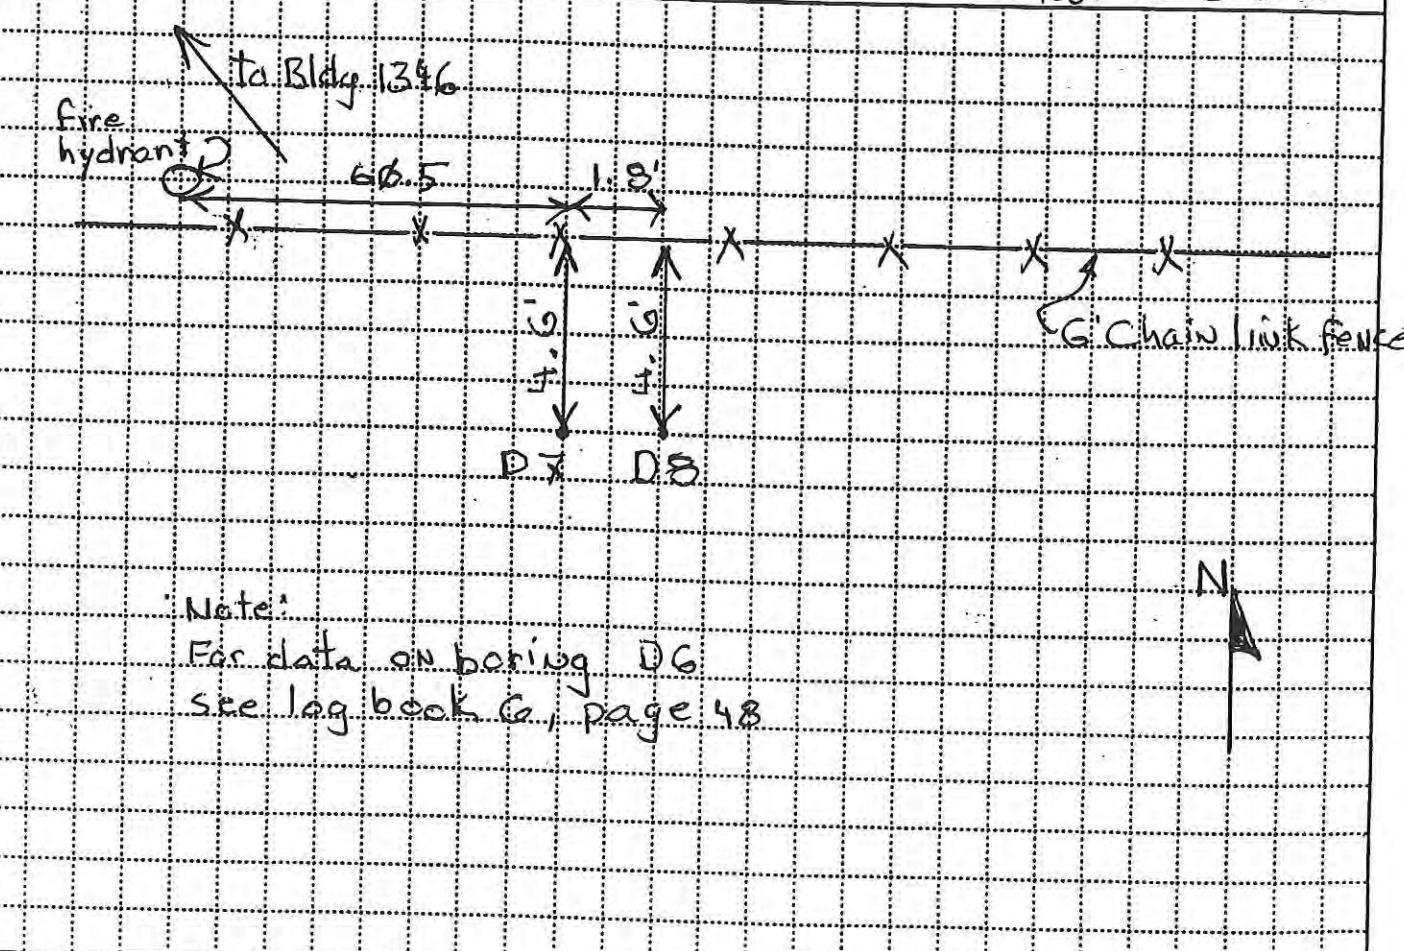 to Bldg. 1346
fire
hydrant
60.5
1.8'
6' Chain link fence
D7 D8
N
Note:
For data on boring D6
see log book 6, page 48